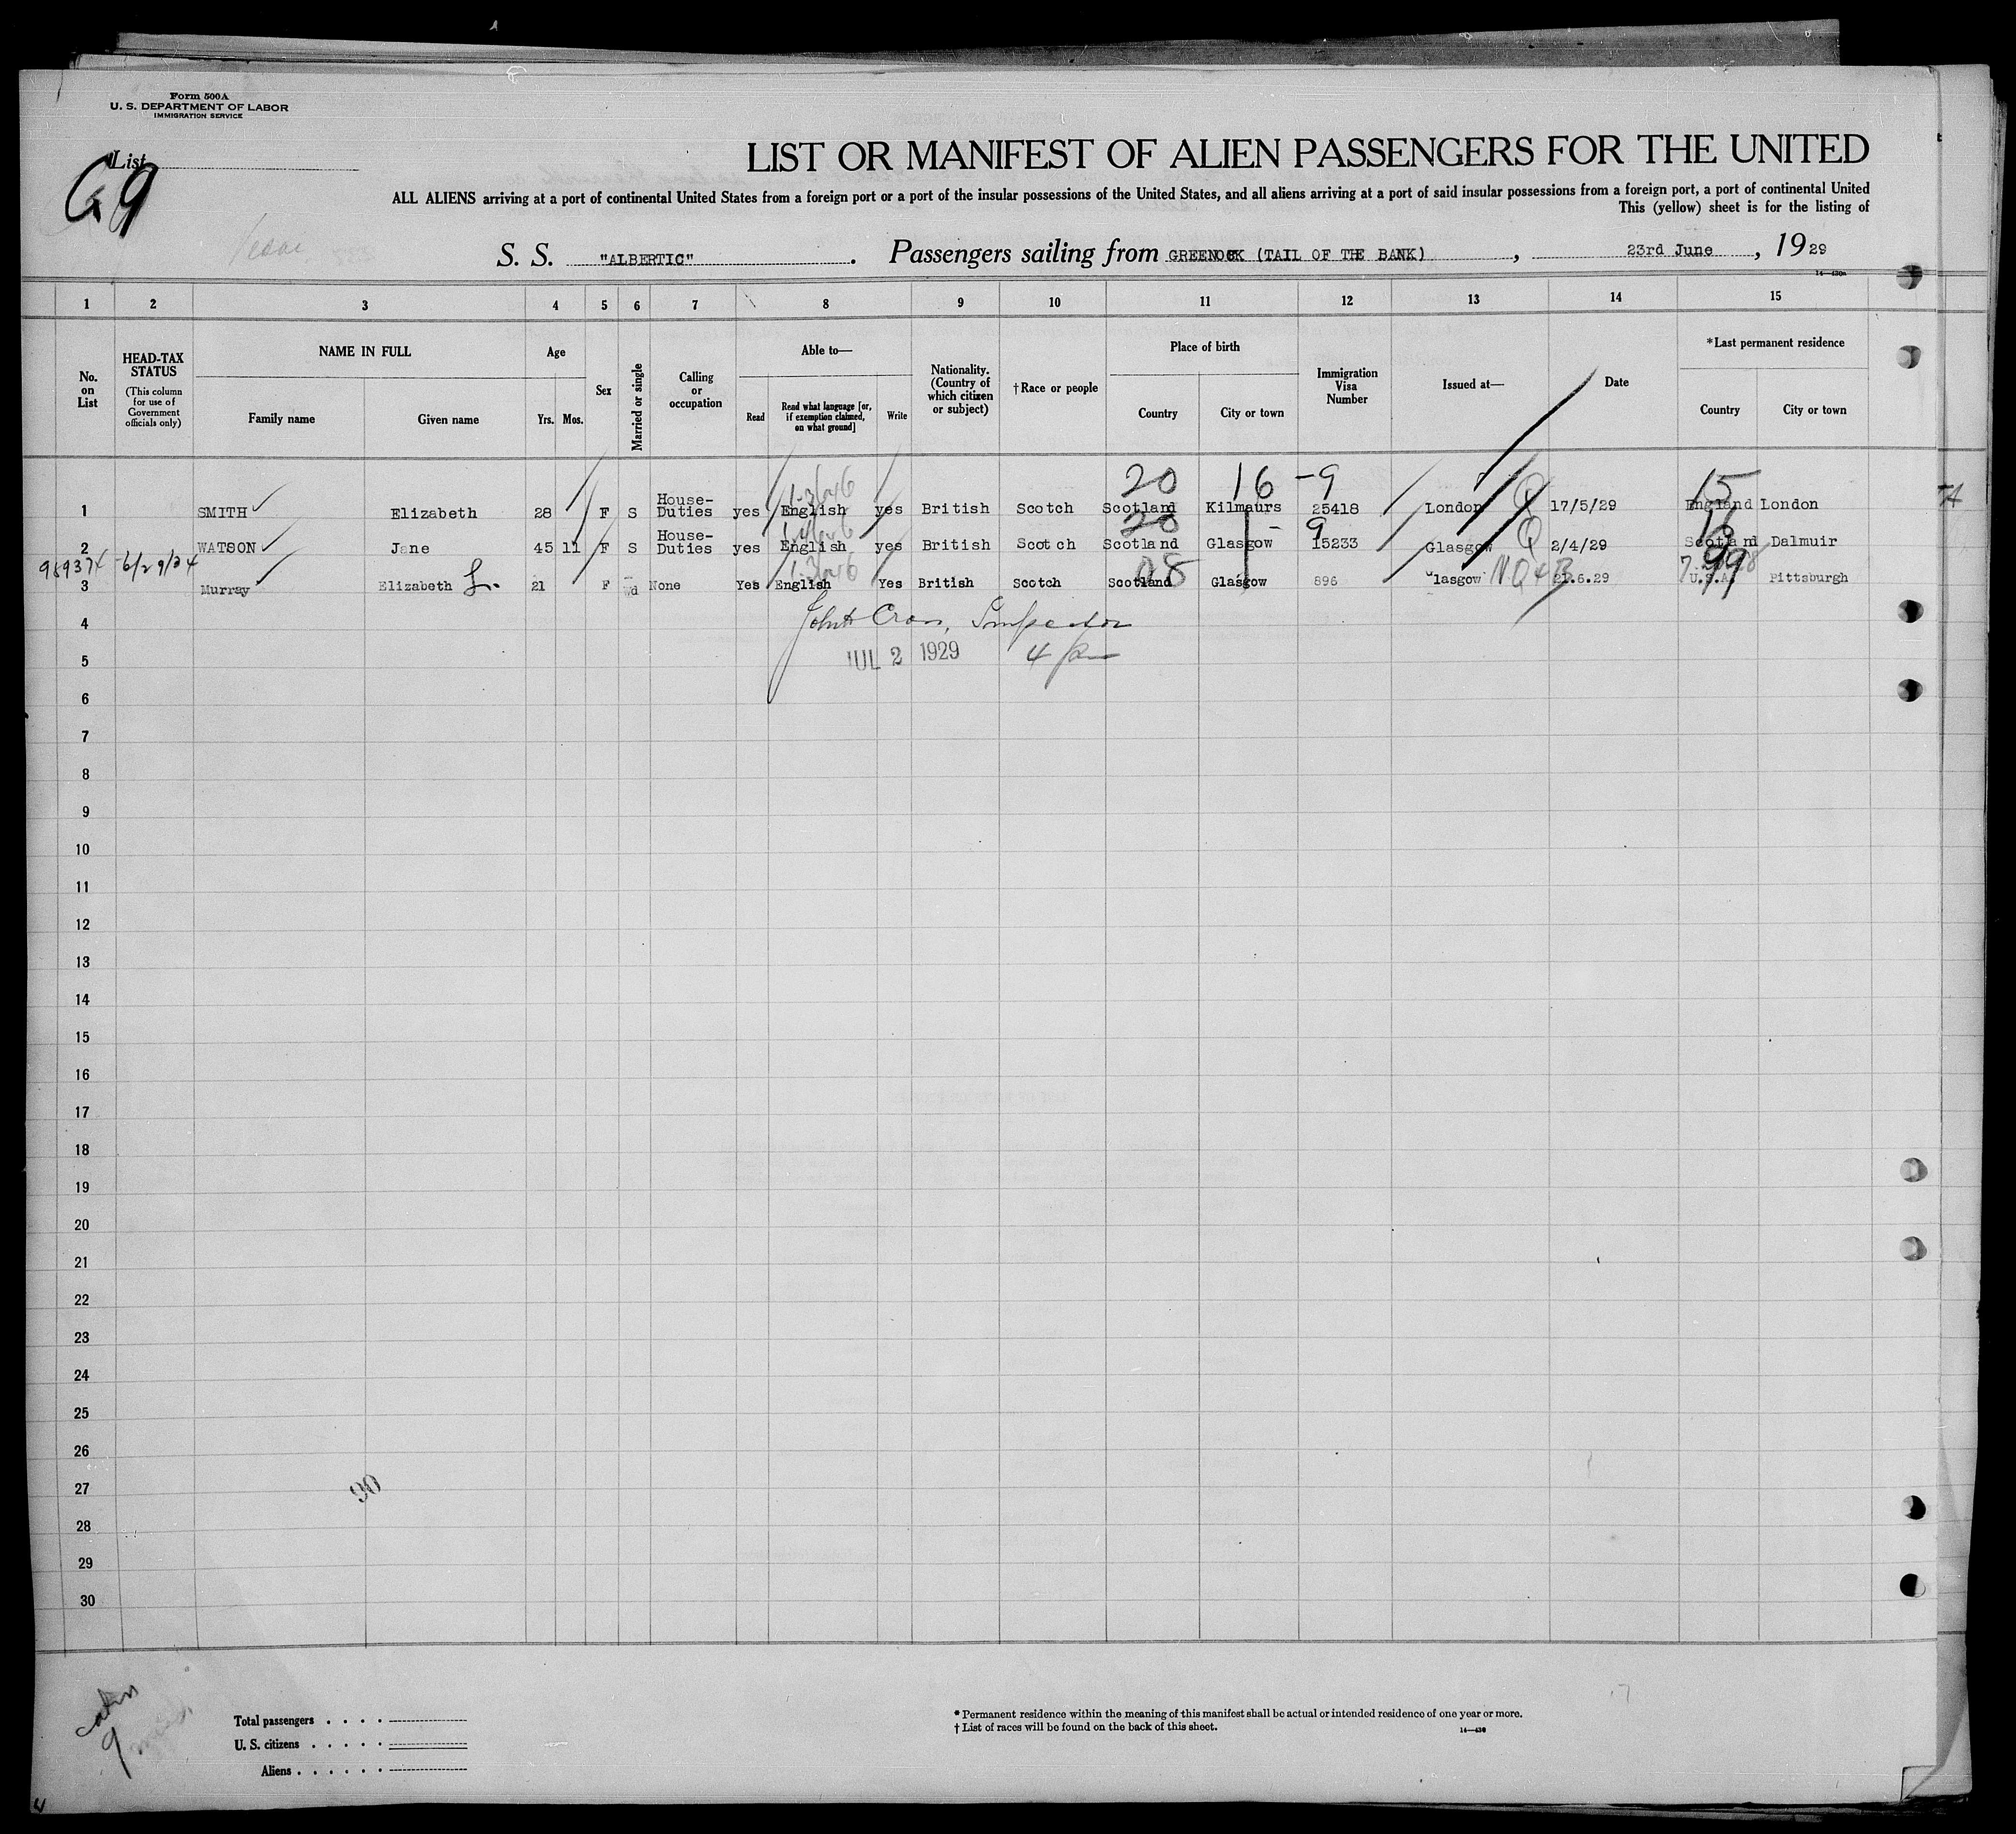 Form 500A
U. S. DEPARTMENT OF LABOR
IMMIGRATION SERVICE
List
G9
LIST OR MANIFEST OF ALIEN PASSENGERS FOR THE UNITED
ALL ALIENS arriving at a port of continental United States from a foreign port or a port of the insular possessions of the United States, and all aliens arriving at a port of said insular possessions from a foreign port, a port of continental United
This (yellow) sheet is for the listing of
S. S. "ALBERTIC". Passengers sailing from GREENOCK (TAIL OF THE BANK), 23rd June, 1929
1 2 3 4 5 6 7 8 9 10 11 12 13 14 15
No. on List
HEAD-TAX STATUS
(This column for use of Government officials only)
NAME IN FULL
Family name Given name
Age
Yrs. Mos.
Sex
Married or single
Calling or occupation
Able to—
Read
Read what language [or, if exemption claimed, on what ground]
Write
Nationality. (Country of which citizen or subject)
†Race or people
Place of birth
Country City or town
Immigration Visa Number
Issued at—
Date
*Last permanent residence
Country City or town
20 16 -9 15
1 SMITH Elizabeth 28 F S House-Duties yes English yes British Scotch Scotland Kilmaurs 25418 London Q 17/5/29 England London
2 WATSON Jane 45 11 F S House-Duties yes English yes British Scotch Scotland Glasgow 15233 Glasgow Q 2/4/29 Scotland Dalmuir
989374-6/29/34
3 Murray Elizabeth L. 21 F Wd None Yes English Yes British Scotch Scotland Glasgow 896 lasgow 21.6.29 U.S.A. Pittsburgh
4 Cross, Inspector
5 JUL 2 1929
6
7
8
9
10
11
12
13
14
15
16
17
18
19
20
21
22
23
24
25
26
27
28
29
30
90
Cabin
9
Total passengers
U. S. citizens
Aliens
* Permanent residence within the meaning of this manifest shall be actual or intended residence of one year or more.
† List of races will be found on the back of this sheet.
14—430